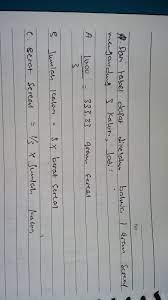 Dari tabel dapat diketahui bahwa 1 gram sereal
mengandung 3 kalori, Jadi
A 1000 = 333.33 gram sereal
3
B Jumlah kalori = 3 x berat sereal
C Berat sereal = 1/3 x Jumlah kalori